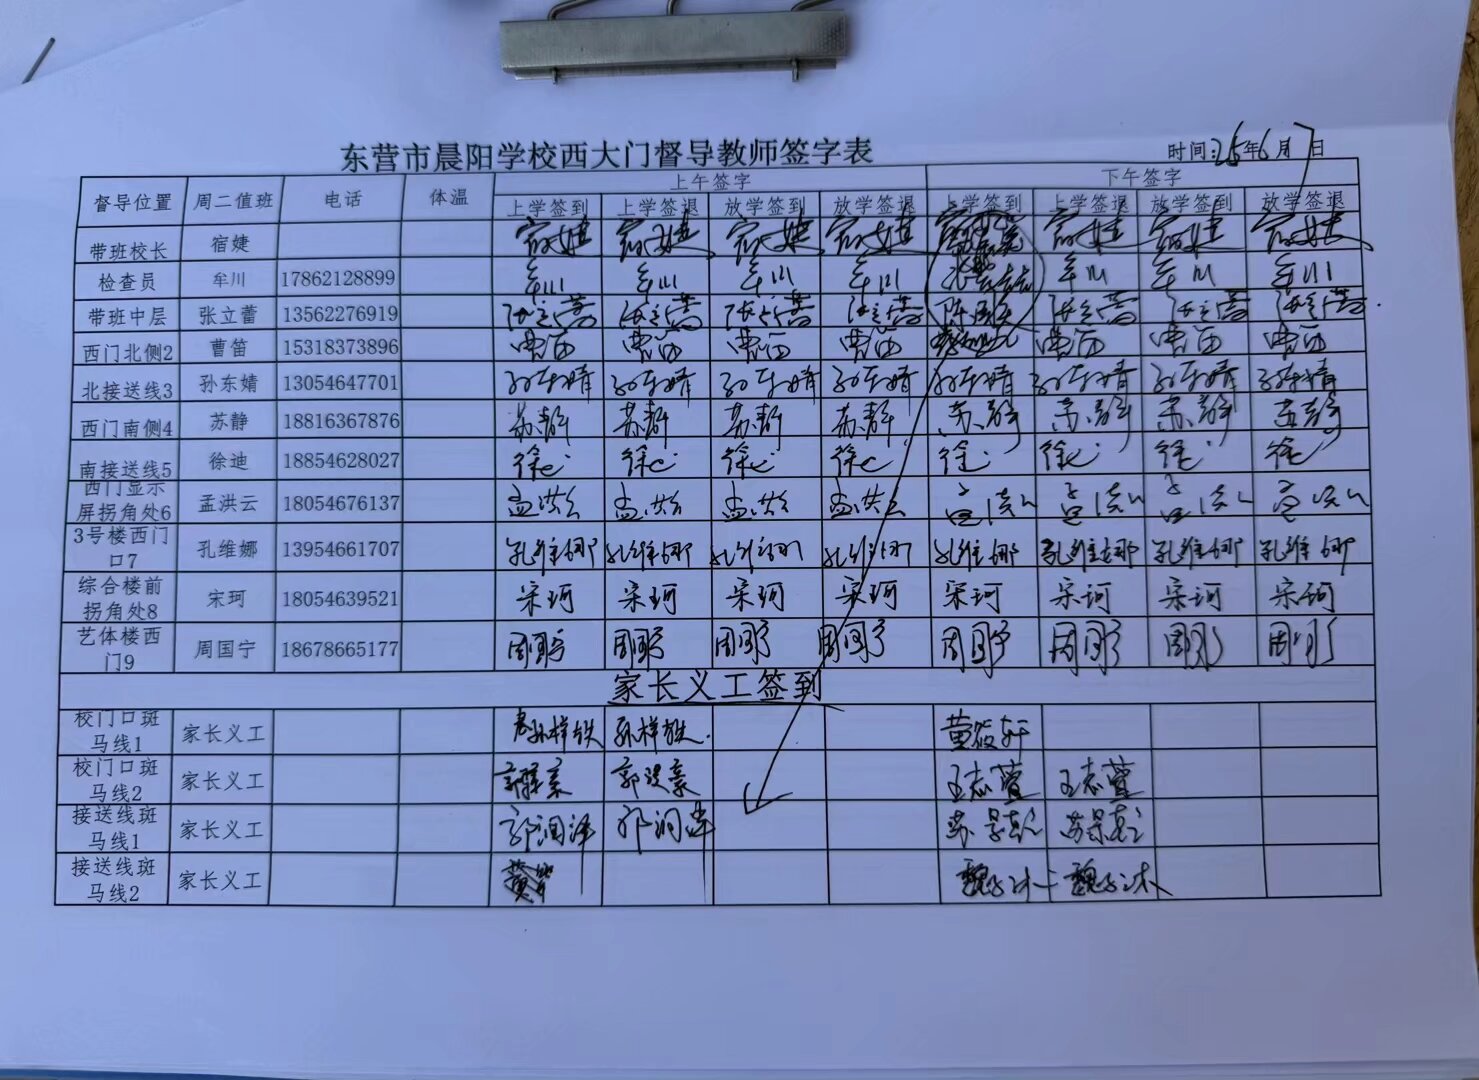 东营市晨阳学校西大门督导教师签字表
时间: 年6月7日
督导位置 周二值班 电话 体温 上午签字 下午签字
上学签到 上学签退 放学签到 放学签退 上学签到 上学签退 放学签到 放学签退
带班校长 宿婕 宿婕 宿婕 宿婕 宿婕 宿婕 宿婕 宿婕
检查员 牟川 17862128899 牟川 牟川 牟川 牟川 牟川 牟川 牟川
带班中层 张立蕾 13562276919 张立蕾 张立蕾 张立蕾 张立蕾 张立蕾 张立蕾 张立蕾
西门北侧2 曹笛 15318373896 曹笛 曹笛 曹笛 曹笛 曹笛 曹笛 曹笛
北接送线3 孙东婧 13054647701 孙东婧 孙东婧 孙东婧 孙东婧 孙东婧 孙东婧 孙东婧 孙东婧
西门南侧4 苏静 18816367876 苏静 苏静 苏静 苏静 苏静 苏静 苏静 苏静
南接送线5 徐迪 18854628027 徐迪 徐迪 徐迪 徐迪 徐迪 徐迪 徐迪 徐迪
西门显示
屏拐角处6 孟洪云 18054676137 孟洪云 孟洪云 孟洪云 孟洪云 孟洪云 孟洪云 孟洪云 孟洪云
3号楼西门
口7 孔维娜 13954661707 孔维娜 孔维娜 孔维娜 孔维娜 孔维娜 孔维娜 孔维娜 孔维娜
综合楼前
拐角处8 宋珂 18054639521 宋珂 宋珂 宋珂 宋珂 宋珂 宋珂 宋珂 宋珂
艺体楼西
门9 周国宁 18678665177 周国宁 周国宁 周国宁 周国宁 周国宁 周国宁 周国宁 周国宁
家长义工签到
校门口斑
马线1 家长义工 黄筱轩
校门口斑
马线2 家长义工 王志萱 王志萱
接送线斑
马线1 家长义工 郭润泽
接送线斑
马线2 家长义工